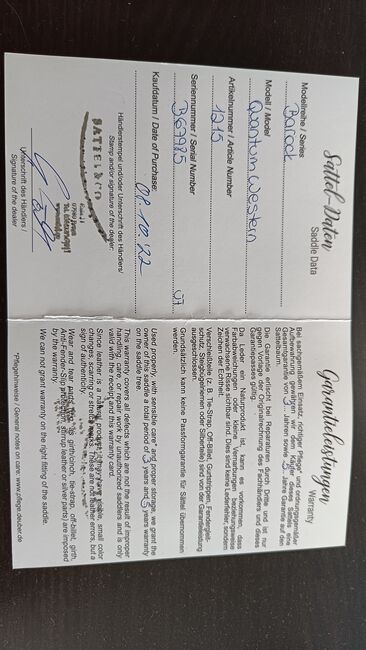 Sattel-Daten
Saddle Data
Modellreihe / Series
Barock
Modell / Model
Quantum Western
Artikelnummer / Article Number
1215
Seriennummer / Serial Number
B67925
Kaufdatum / Date of Purchase:
08.10.'22
Händlerstempel und/oder Unterschrift des Händlers/
Stamp and/or signature of the dealer:
SATTEL & CO
Unterschrift des Händlers /
Signature of the dealer
Garantieleistungen
Warranty
Bei sachgemäßem Einsatz, richtiger Pflege* und ordnungsgemäßer
Aufbewahrung gewähren wir dem Käufer dieses Sattels eine
Gesamtgarantie von 3 Jahren sowie 5 Jahre Garantie auf den
Sattelbaum.
Die Garantie erlischt bei Reparaturen durch Dritte und ist nur
gegen Vorlage der Originalrechnung des Fachhändlers und dieses
Garantiepasses gültig.
Da Leder ein Naturprodukt ist, kann es vorkommen, dass
Farbabweichungen oder kleine Vernarbungen beziehungsweise
verwachsene Risse sichtbar sind. Dies sind keine Lederfehler, sondern
Zeichen der Echtheit.
Verschleißteile (z. B. Tie-Strap, Off-Billet, Gurtstrippen, Fendergleit-
schutz, Steigbügelriemen oder Silberteile) sind von der Garantieleistung
ausgeschlossen.
Grundsätzlich kann keine Passformgarantie für Sättel übernommen
werden.
Used properly, with sensible care* and proper storage, we grant the
owner of this saddle a total period of 3 years and 5 years warranty
on the saddle tree.
This warranty covers all defects which are not the result of improper
handling, care, or repair work by unauthorized saddlers and is only
valid with the receipt and this warranty card.
Since leather is a natural product, it may be possible, small color
changes, scarring or stretch marks. These are not leather errors, but a
sign of authenticity.
Wear and tear parts (e.g. girthing, tie-strap, off-billet, girth,
Anti-Fender-Slip, stirrup leather or silver parts) are imposed
by the warranty.
We can not grant warranty on the right fitting of the saddle.
*Pflegehinweise / General notes on care: www.pflege.deuber.de